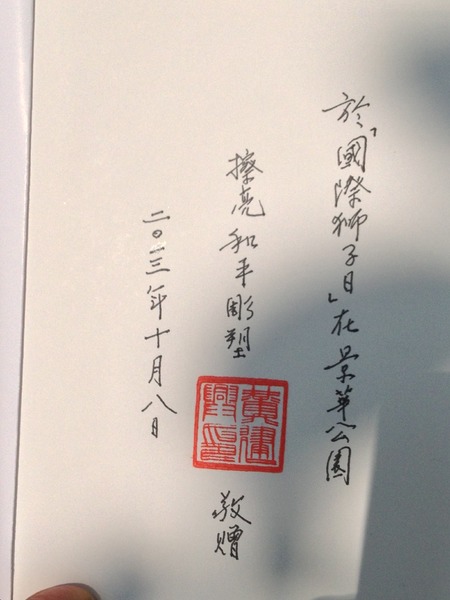 於「國際狮子日」在景華公園
擦亮和平彫塑
黃建興印
敬贈
二〇一三年十月八日